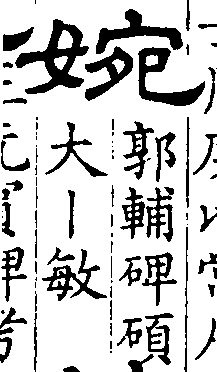 婉
郭輔碑碩
大丨敏